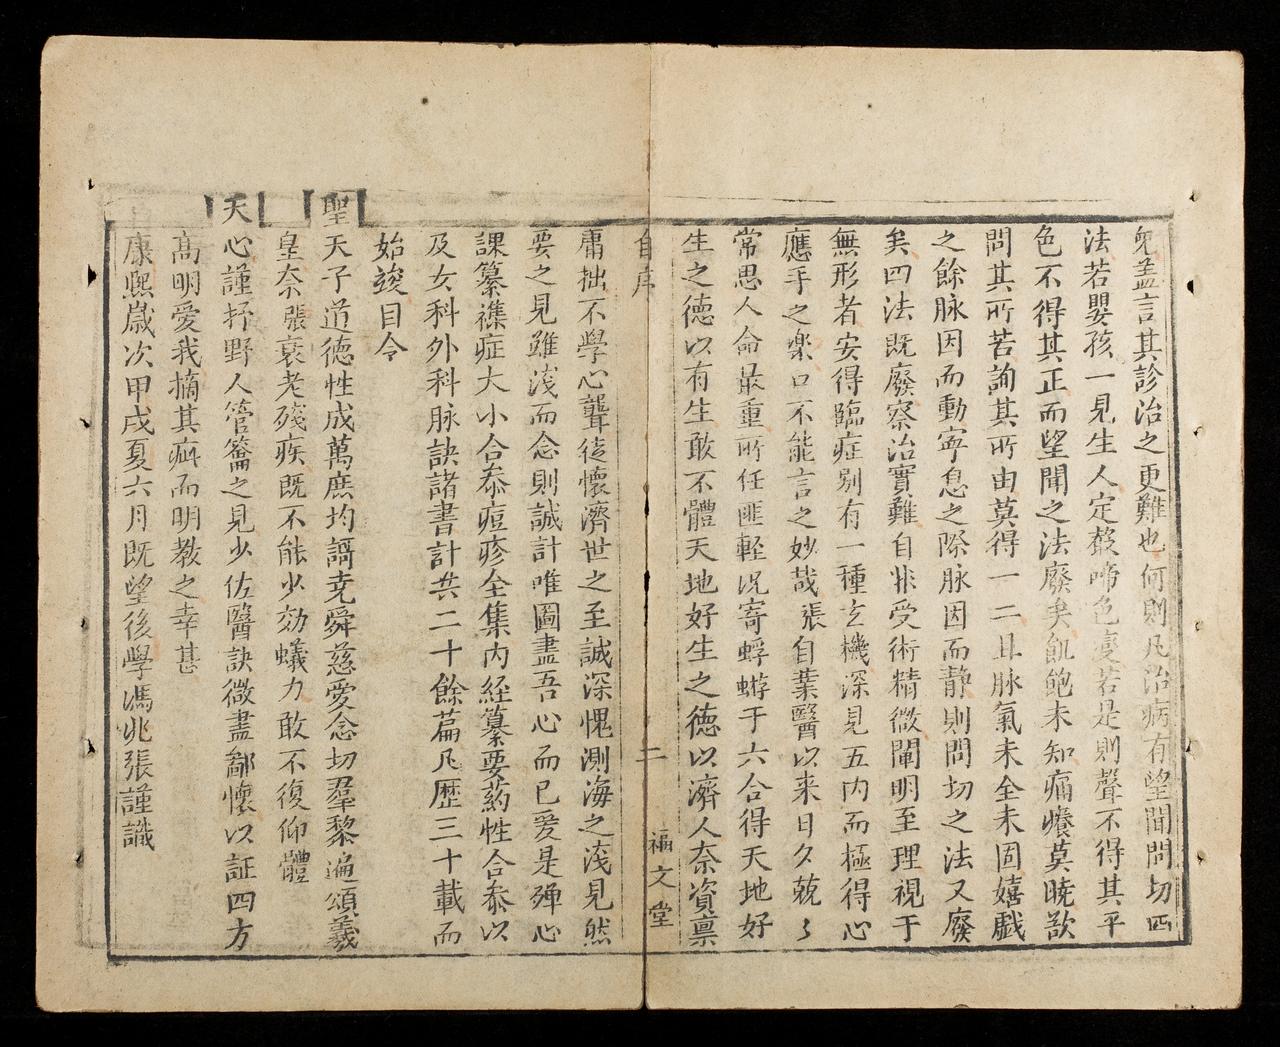 兒盖言其診治之更難也何則凡治病有望聞問切四
法若嬰孩一見生人定發啼色變若是則聲不得其平
色不得其正而望聞之法廢矣飢飽未知痛癢莫曉歆
問其所苦詢其所由莫得一二且脉氣未全未固嬉戯
之餘脉因而動寧息之際脉因而静則問切之法又廢
矣四法既廢察治實難自非受術精微闡明至理視于
無形者安得臨症別有一種玄機深見五内而極得心
應手之樂口不能言之妙哉張自葉醫以来日久兢〻
常思人命最重所任匪輕况寄蜉蝣于六合得天地好
生之德以有生敢不體天地好生之德以濟人奈資禀
自序
二
福文堂
庸拙不學心聾徒懷濟世之至誠深愧測海之淺見然
要之見雖淺而念則誠計唯圖盡吾心而已爰是殫心
課纂襍症大小合叅痘疹全集内経纂要葯性合叅以
及女科外科脉訣諸書計共二十餘篇凡歷三十載而
始竣目今
聖天子道德性成萬庶均謌尭舜慈愛念切羣黎遍頌羲
皇奈張衰老殘疾既不能少効蟻力敢不復仰體
天心謹抒野人管籥之見少佐醫訣微盡鄙懷以証四方
高明愛我摘其疵而明教之幸甚
康熈歲次甲戌夏六月既望後學馮兆張謹識